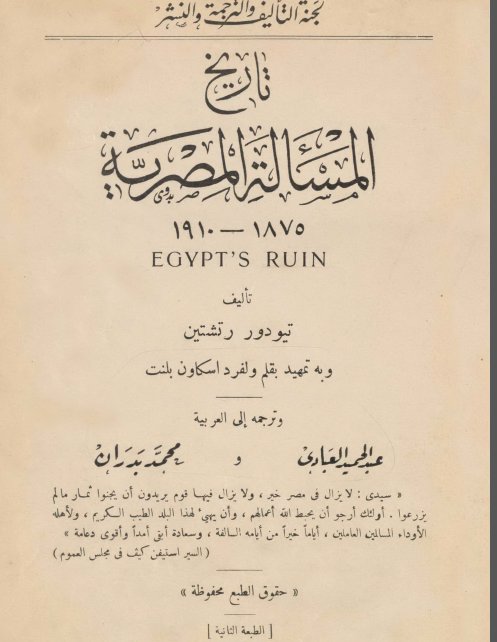 لجنة التأليف والترجمة والنشر
تاريخ
المسألة المصرية
بدوى
١٨٧٥ — ١٩١٠
EGYPT'S RUIN
تأليف
تيودور رتشتين
وبه تمهيد بقلم ولفرد اسكاون بلنت
وترجمه إلى العربية
عبد الحميد العبادى و محمد بدران
« سيدى : لا يزال فى مصر خير ، ولا يزال فيها قوم يريدون أن يجنوا ثمار مالم
يزرعوا . أولئك أرجو أن يحبط الله أعمالهم ، وأن يهيئ لهذا البلد الطيب الكريم ، ولأهله
الأوداء المسالمين العاملين ، أياماً خيراً من أيامه السالفة ، وسعادة أبقى أمداً وأقوى دعامة »
( السير استيفن كيڤ فى مجلس العموم )
« حقوق الطبع محفوظة »
[ الطبعة الثانية ]